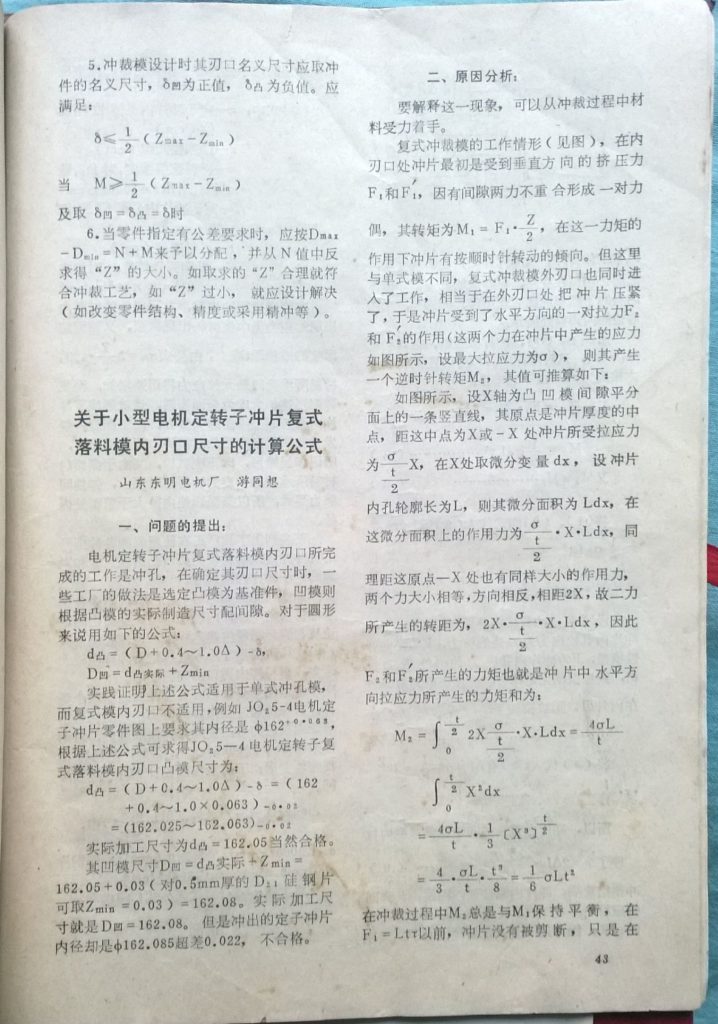 5.冲裁模设计时其刃口名义尺寸应取冲
件的名义尺寸，δ凹为正值，δ凸为负值。应
满足：
δ≤1/2（Zmax－Zmin）
当 M≥1/2（Zmax－Zmin）
及取 δ凹＝δ凸＝δ时
6.当零件指定有公差要求时，应按Dmax
－Dmin＝N＋M来予以分配，并从N值中反
求得“Z”的大小。如取求的“Z”合理就符
合冲裁工艺，如“Z”过小，就应设计解决
（如改变零件结构、精度或采用精冲等）。
关于小型电机定转子冲片复式
落料模内刃口尺寸的计算公式
山东东明电机厂 游同想
一、问题的提出：
电机定转子冲片复式落料模内刃口所完
成的工作是冲孔，在确定其刃口尺寸时，一
些工厂的做法是选定凸模为基准件，凹模则
根据凸模的实际制造尺寸配间隙。对于圆形
来说用如下的公式：
d凸＝（D＋0.4～1.0Δ）－δ，
D凹＝d凸实际＋Zmin
实践证明上述公式适用于单式冲孔模，
而复式模内刃口不适用，例如JO₂5-4电机定
子冲片零件图上要求其内径是φ162⁺⁰·⁰⁶³，
根据上述公式可求得JO₂5—4电机定转子复
式落料模内刃口凸模尺寸为：
d凸＝（D＋0.4～1.0Δ）－δ＝（162
＋0.4～1.0×0.063）－0.02
＝(162.025～162.063)－0.02
实际加工尺寸为d凸＝162.05当然合格。
其凹模尺寸D凹＝d凸实际＋Zmin＝
162.05＋0.03（对0.5mm厚的D₂₁硅钢片
可取Zmin＝0.03）＝162.08。实际加工尺
寸就是D凹＝162.08。但是冲出的定子冲片
内径却是φ162.085超差0.022，不合格。
二、原因分析：
要解释这一现象，可以从冲裁过程中材
料受力着手。
复式冲裁模的工作情形（见图），在内
刃口处冲片最初是受到垂直方向的挤压力
F₁和F₁′，因有间隙两力不重合形成一对力
偶，其转矩为M₁＝F₁·Z/2，在这一力矩的
作用下冲片有按顺时针转动的倾向。但这里
与单式模不同，复式冲裁模外刃口也同时进
入了工作，相当于在外刃口处把冲片压紧
了，于是冲片受到了水平方向的一对拉力F₂
和F₂′的作用（这两个力在冲片中产生的应力
如图所示，设最大拉应力为σ），则其产生
一个逆时针转矩M₂，其值可推算如下：
如图所示，设X轴为凸凹模间隙平分
面上的一条竖直线，其原点是冲片厚度的中
点，距这中点为X或－X处冲片所受拉应力
为σ/(t/2)X，在X处取微分变量dx，设冲片
内孔轮廓长为L，则其微分面积为Ldx，在
这微分面积上的作用力为σ/(t/2)·X·Ldx，同
理距这原点—X处也有同样大小的作用力，
两个力大小相等，方向相反，相距2X，故二力
所产生的转距为，2X·σ/(t/2)·X·Ldx，因此
F₂和F₂′所产生的力矩也就是冲片中水平方
向拉应力所产生的力矩和为：
M₂＝∫₀^(t/2) 2X σ/(t/2)·X·Ldx＝4σL/t
∫₀^(t/2) X²dx
＝4σL/t·1/3〔X³〕^(t/2)
＝4/3·σL/t·t³/8＝1/6 σLt²
在冲裁过程中M₂总是与M₁保持平衡，在
F₁＝Ltτ以前，冲片没有被剪断，只是在
43